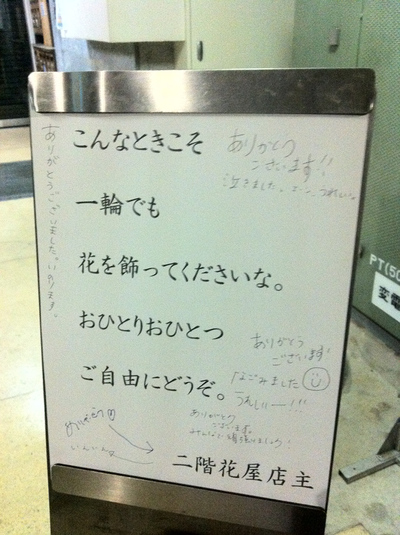 こんなときこそ
一輪でも
花を飾ってくださいな。
おひとりおひとつ
ご自由にどうぞ。
二階花屋店主
ありがとうございました。いのります。
ありがとう
ございます!!
泣きました。
うれしい。
ありがとう
ございます
なごみました
うれしいー!!!
ありがとう
ございます。
みんなで頑張りましょう
PT(50
変電